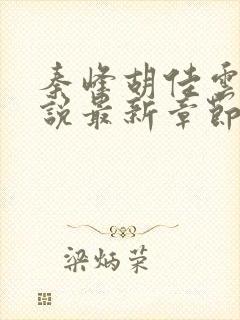 秦峰胡佳雲
說最新章節
梁炳荣